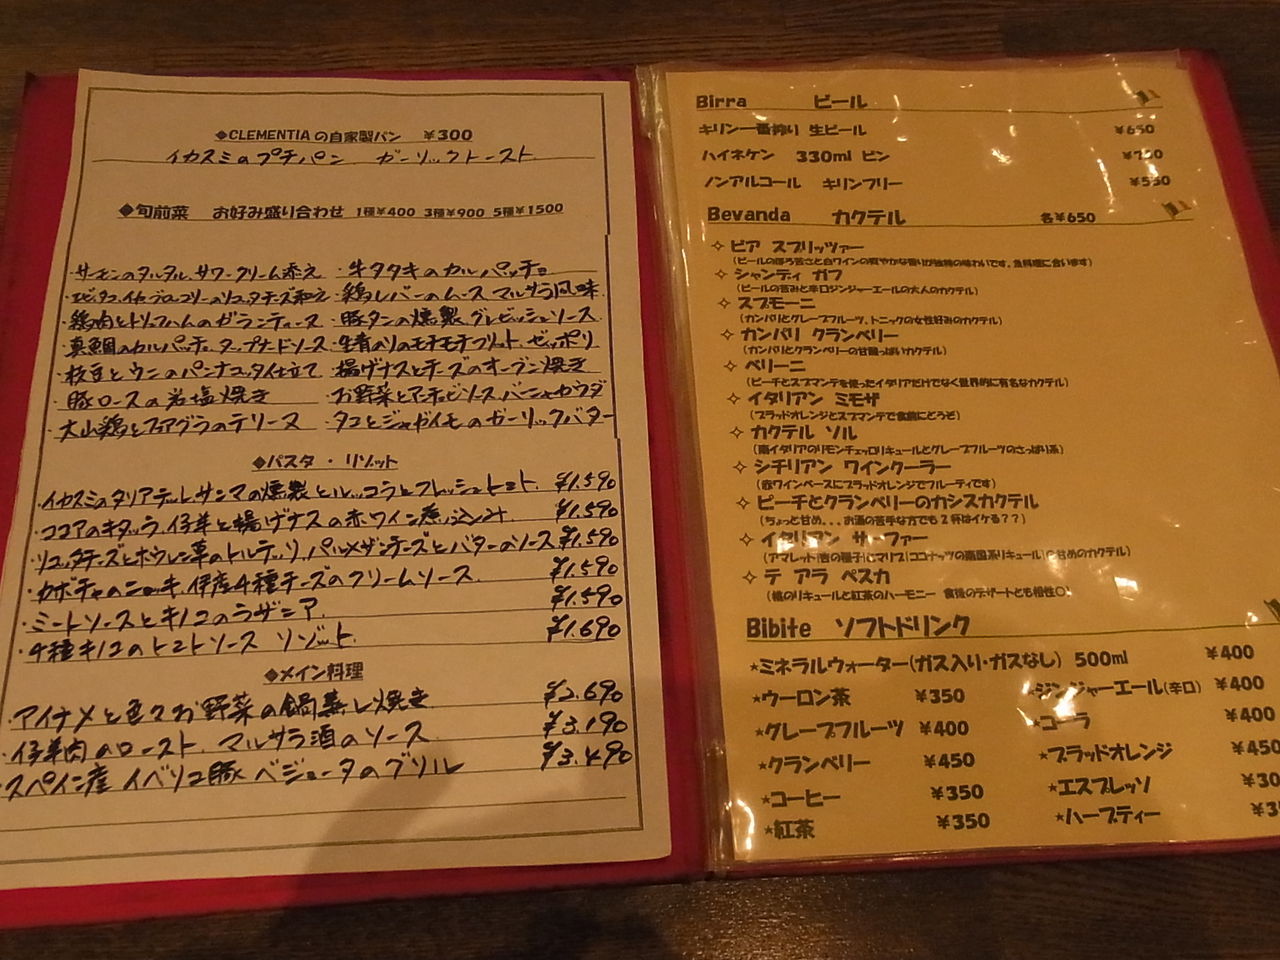 ◆CLEMENTIAの自家製パン ¥300
イカスミのプチパン ガーリックトースト
◆旬前菜 お好み盛り合わせ 1種¥400 3種¥900 5種¥1500
・サーモンのタルタル、サワークリーム添え ・牛タタキのカルパッチョ
・エビ、タコ、イカ、ブロッコリーのリコッタチーズ和え ・鶏レバーのムース マルサラ風味
・鶏肉とトリュフ、ハムのガランティーヌ ・豚タンの燻製 グレビッシュソース
・真鯛のカルパッチョ タップナードソース ・生青のりのモチモチフリット、ゼッポリ
・枝豆とウニのパンナコッタ仕立て ・揚げナスとチーズのオーブン焼き
・豚ロースの岩塩焼き ・お野菜とアンチョビソース、バーニャカウダ
・大山鶏とフォアグラのテリーヌ ・タコとジャガイモのガーリックバター
◆パスタ・リゾット
・イカスミのタリアテッレ、サンマの燻製とルッコラとフレッシュトマト ¥1.590
・ココアのキタッラ、仔羊と揚げナスの赤ワイン煮込み ¥1.590
・リコッタチーズとホウレン草のトルテッリ、パルメザンチーズとバターのソース ¥1.590
・カボチャのニョッキ、伊産4種チーズのクリームソース ¥1.590
・ミートソースとキノコのラザニア ¥1.590
・4種キノコのトマトソース リゾット ¥1.690
◆メイン料理
・アイナメと色々お野菜の鍋蒸し焼き ¥2.690
・仔羊肉のロースト マルサラ酒のソース ¥3.190
・スペイン産 イベリコ豚 ベジョータのグリル ¥3.490
Birra ビール
キリン一番搾り 生ビール ¥650
ハイネケン 330ml ビン ¥750
ノンアルコール キリンフリー ¥550
Bevanda カクテル 各¥650
✧ ビア スプリッツァー
(ビールのほろ苦さと白ワインの爽やかな香りが独特の味わいです。魚料理に合います)
✧ シャンディ ガフ
(ビールの苦みと辛口ジンジャーエールの大人のカクテル)
✧ スプモーニ
(カンパリとグレープフルーツ、トニックの女性好みのカクテル)
✧ カンパリ クランベリー
(カンパリとクランベリーの甘酸っぱいカクテル)
✧ ベリーニ
(ピーチとスプマンテを使ったイタリアだけでなく世界的に有名なカクテル)
✧ イタリアン ミモザ
(ブラッドオレンジとスプマンテで食前にどうぞ)
✧ カクテル ソル
(南イタリアのリモンチェッロリキュールとグレープフルーツのさっぱり系)
✧ シチリアン ワインクーラー
(赤ワインベースにブラッドオレンジでフルーティです)
✧ ピーチとクランベリーのカシスカクテル
(ちょっと甘め...お酒の苦手な方でも2杯はイケる??)
✧ イタリアン サーファー
(アマレット(杏の種子)とマリブ(ココナッツの南国系リキュール)の甘めのカクテル)
✧ テ アラ ペスカ
(桃のリキュールと紅茶のハーモニー 食後のデザートとも相性〇)
Bibite ソフトドリンク
★ミネラルウォーター(ガス入り・ガスなし) 500ml ¥400
★ウーロン茶 ¥350 ★ジンジャーエール(辛口) ¥400
★グレープフルーツ ¥400 ★コーラ ¥400
★クランベリー ¥450 ★ブラッドオレンジ ¥450
★コーヒー ¥350 ★エスプレッソ ¥30
★紅茶 ¥350 ★ハーブティー ¥3